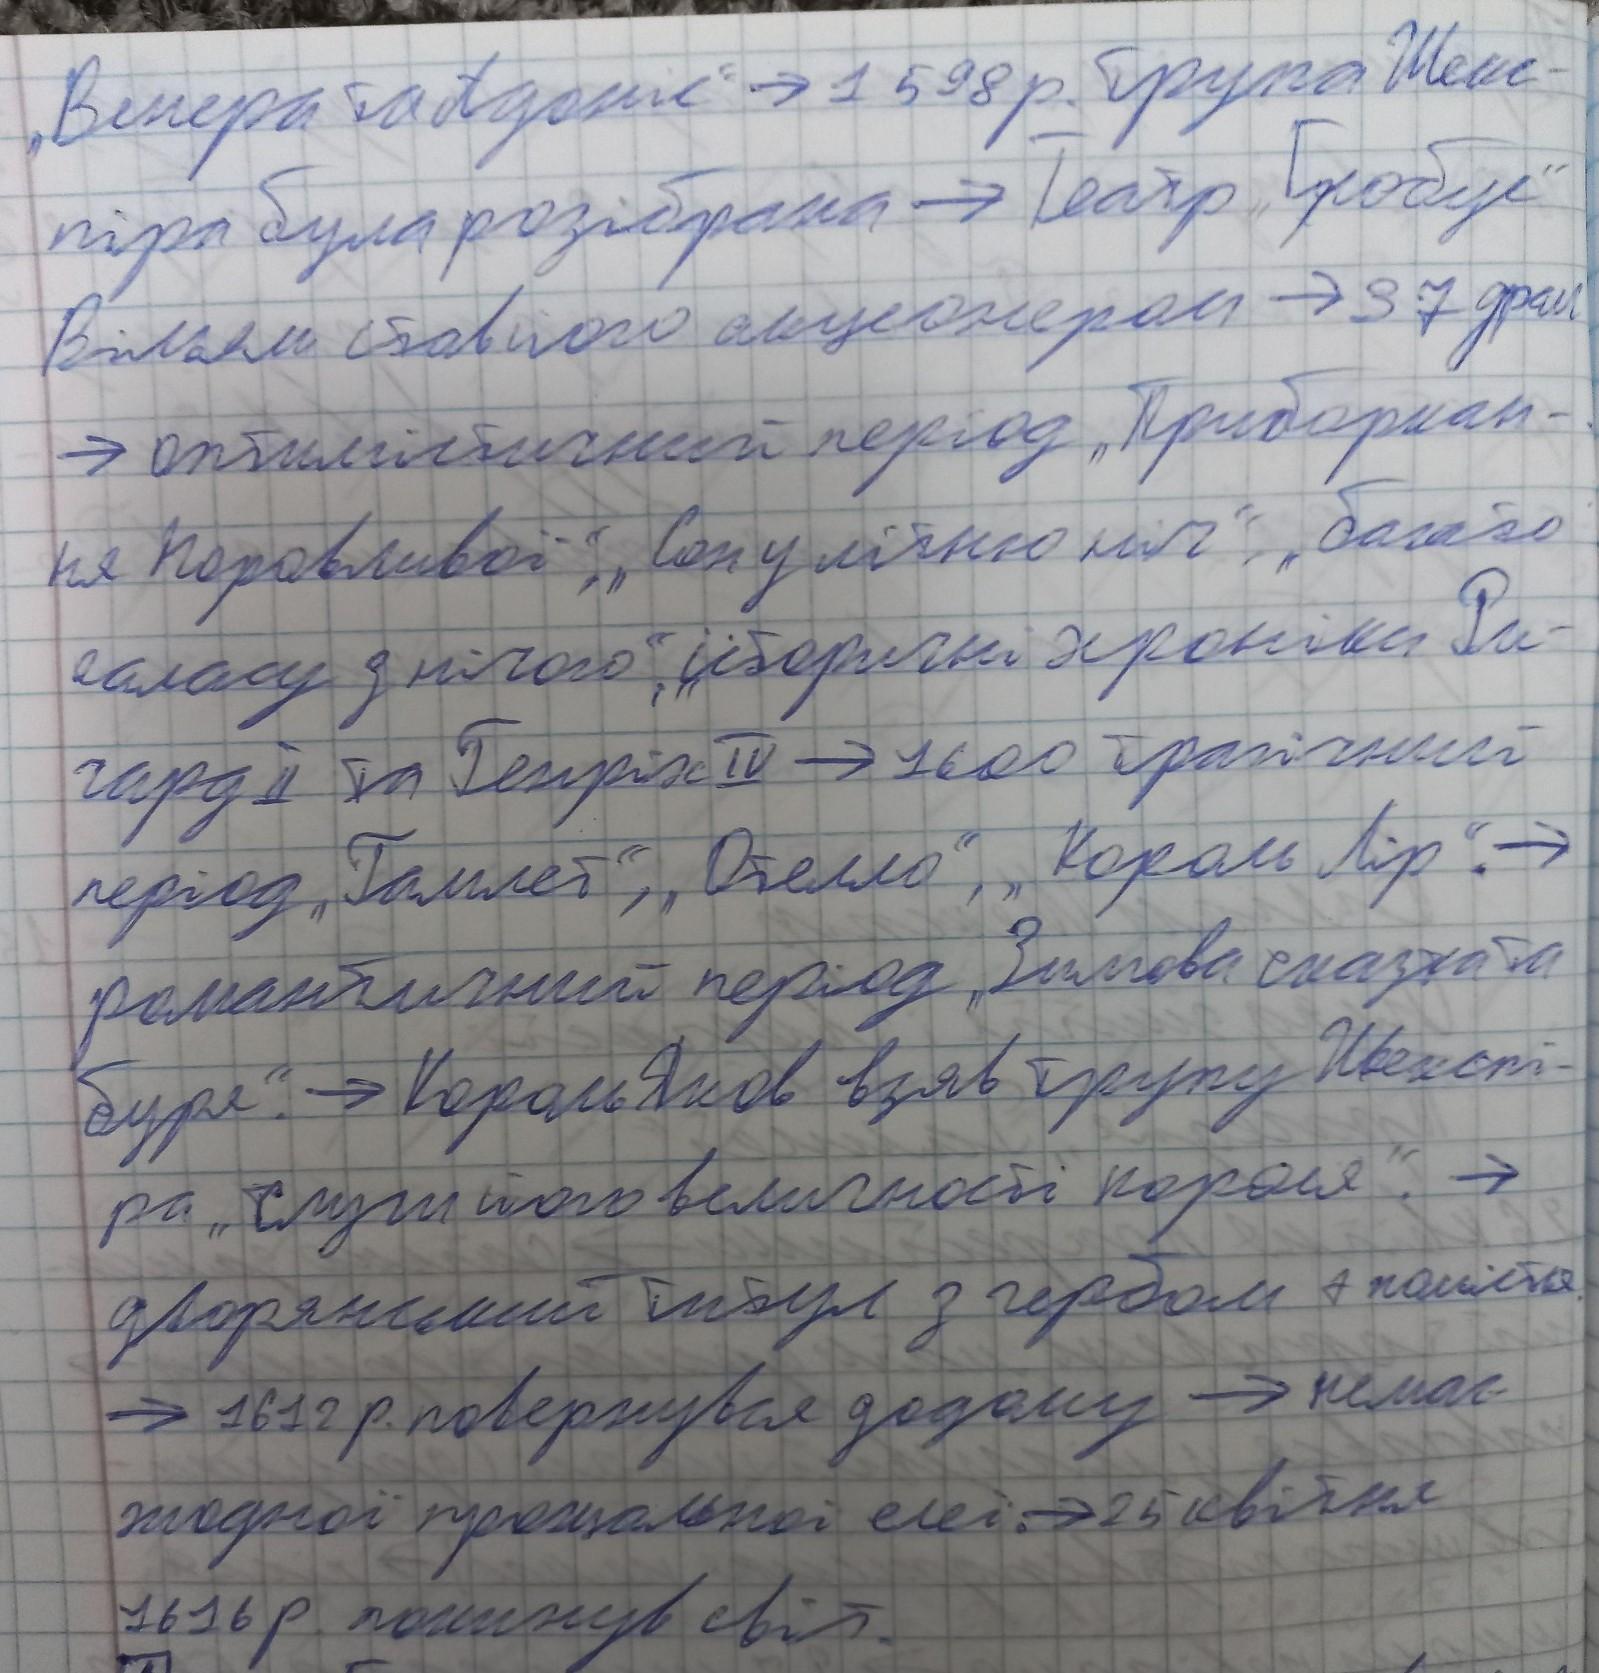 „Венера та Адоніс" → 1598 р. трупа Шекс-
піра була розібрана → Театр „Глобус"
Вільям став його акціонером → 37 драм
→ оптимістичний період „Приборкан-
ня Норовливої", „Сон у літню ніч", „багато
галасу з нічого", „історичні хроніки Ри-
чард II та Генріх IV → 1600 трагічний
період „Гамлет", „Отелло", „Король Лір". →
романтичний період „Зимова сказка та
буря". → Король Яков взяв трупу Шекспі-
ра „слуги його величності короля". →
дворянський титул з гербом + помістья.
→ 1612 р. повернувся додому → немає
жодної прощальної елегії. → 25 квітня
1616 р. покинув світ.